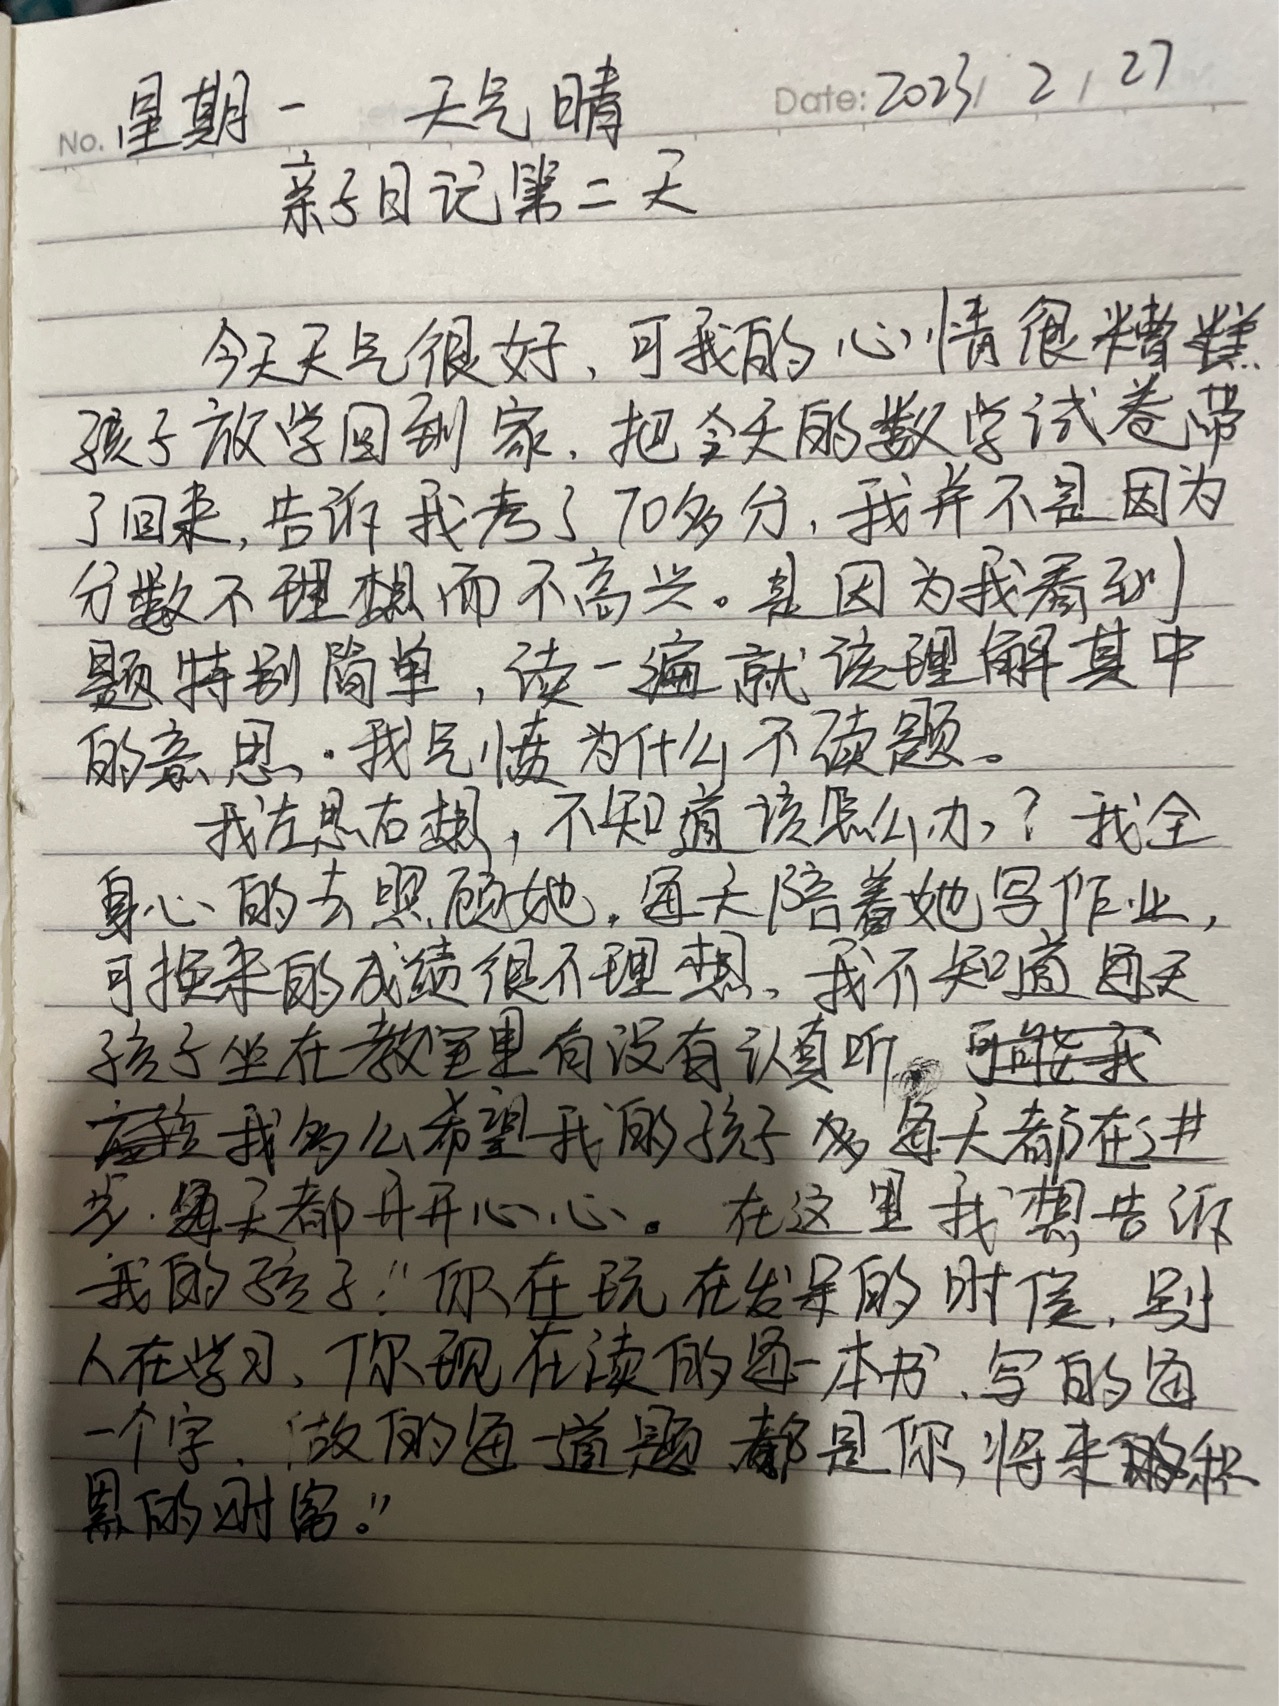 No. 星期一 天气晴 Date: 2023/ 2 / 27
亲子日记第二天
今天天气很好、可我的心情很糟糕
孩子放学回到家.把今天的数学试卷带
了回来,告诉我考了70多分,我并不是因为
分数不理想而不高兴。是因为我看到
题特别简单,读一遍就该理解其中
的意思.我气愤为什么不读题。
我左思右想,不知道该怎么办?我全
身心的去照顾她.每天陪着她写作业,
可换来的成绩很不理想、我不知道每天
孩子坐在教室里有没有认真听 可能我
我多么希望我的孩子 每天都在进
步.每天都开开心心。在这里我想告诉
我的孩子:"你在玩在发呆的时候.别
人在学习、你现在读的每一本书、写的每
一个字、做的每一道题 都是你将来 积
累的财富。"